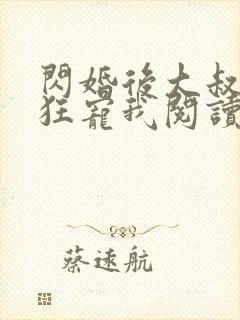 閃婚後大叔
狂寵我閱讀
蔡遠航